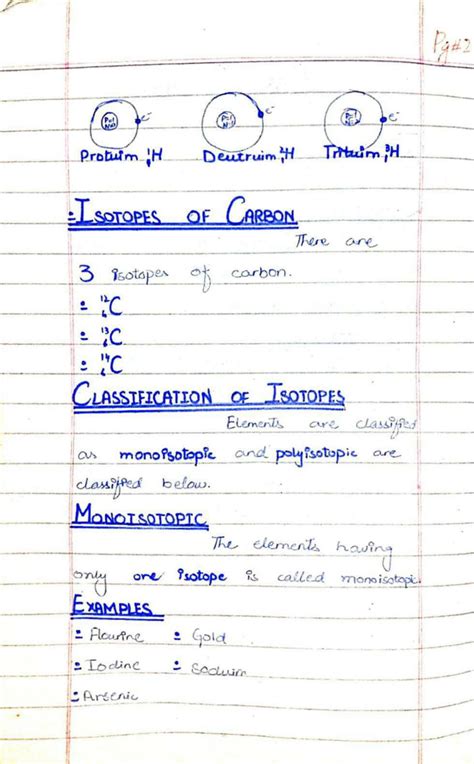 Pg#2
P=1 e-
N=0
P=1 e-
N=1
P=1 e-
N=2
Protuim ¹₁H Deutruim ²₁H Trituim ³₁H
:Isotopes of Carbon
There are
3 isotopes of carbon.
= ¹²₆C
= ¹³₆C
= ¹⁴₆C
Classification of Isotopes
Elements are classified
as monoisotopic and polyisotopic are
classified below.
Monoisotopic
The elements having
only one isotope is called monoisotopic
Examples
= Flourine = Gold
= Iodine = Soduim
= Arsenic